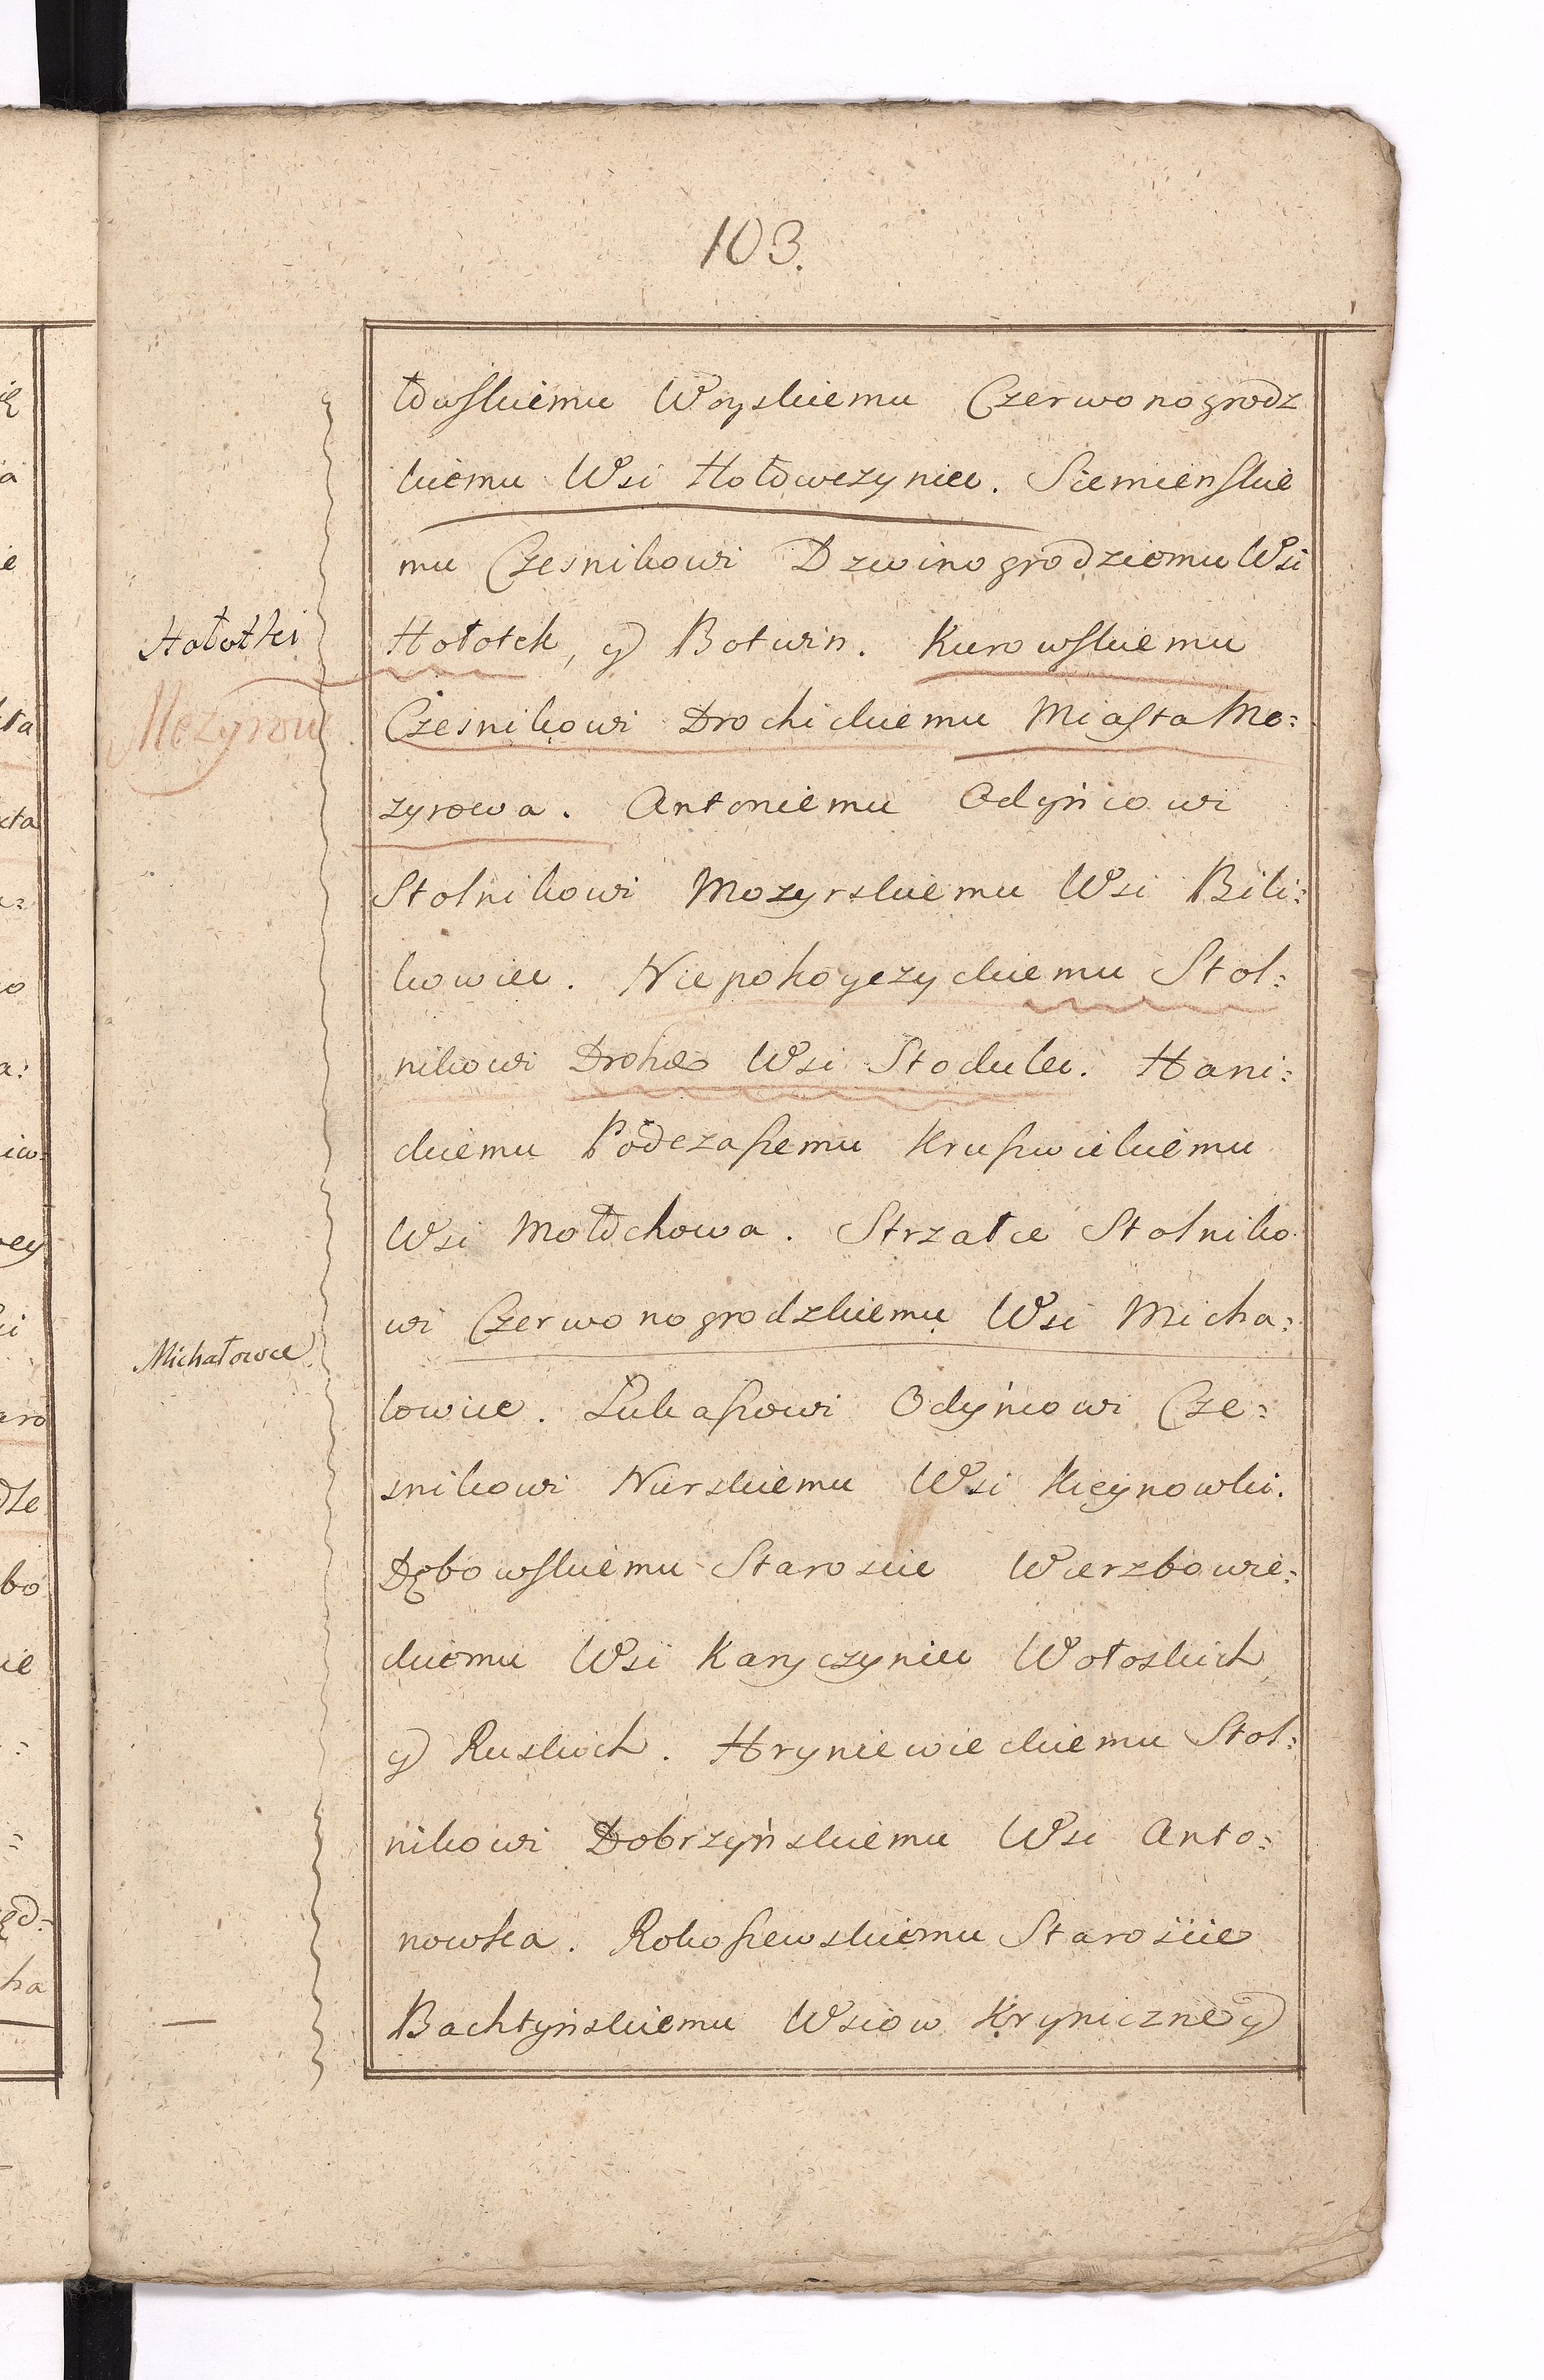 103.
łowskiemu Woyskiemu Czerwonogrodz
kiemu Wsi Hołowczyniec. Siemienskie
mu Czesnikowi Dzwinogrodziemu Wsi
Hołotki
Hołotek, y Botwin. Kurowskiemu
Mezyrow
Cześnikowi Drochickiemu Miasta Me:
zyrowa. Antoniemu Odyńcowi
Stolnikowi Mozyrskiemu Wsi Bili:
kowiec. Niepokoyczyckiemu Stol:
nikowi Wsi Stodulec. Hani:
ckiemu Podczaszemu Kruszwickiemu
Wsi Mołochowa. Strzałce Stolniko
wi Czerwonogrodzkiemu Wsi Micha:
Michałowce
lowiec. Łukaszowi Odyńcowi Cze:
snikowi Nurskiemu Wsi Kieynowki.
Dębowskiemu Staroscie Wierzbowie:
ckiemu Wsi Karyczyniec Wołoskich
y Ruskich. Hryniewieckiemu Stol:
nikowi Dobrzyńskiemu Wsi Anto:
nowka. Rokoszewskiemu Starościе
Bachtyńskiemu Wsiow Kryniczney